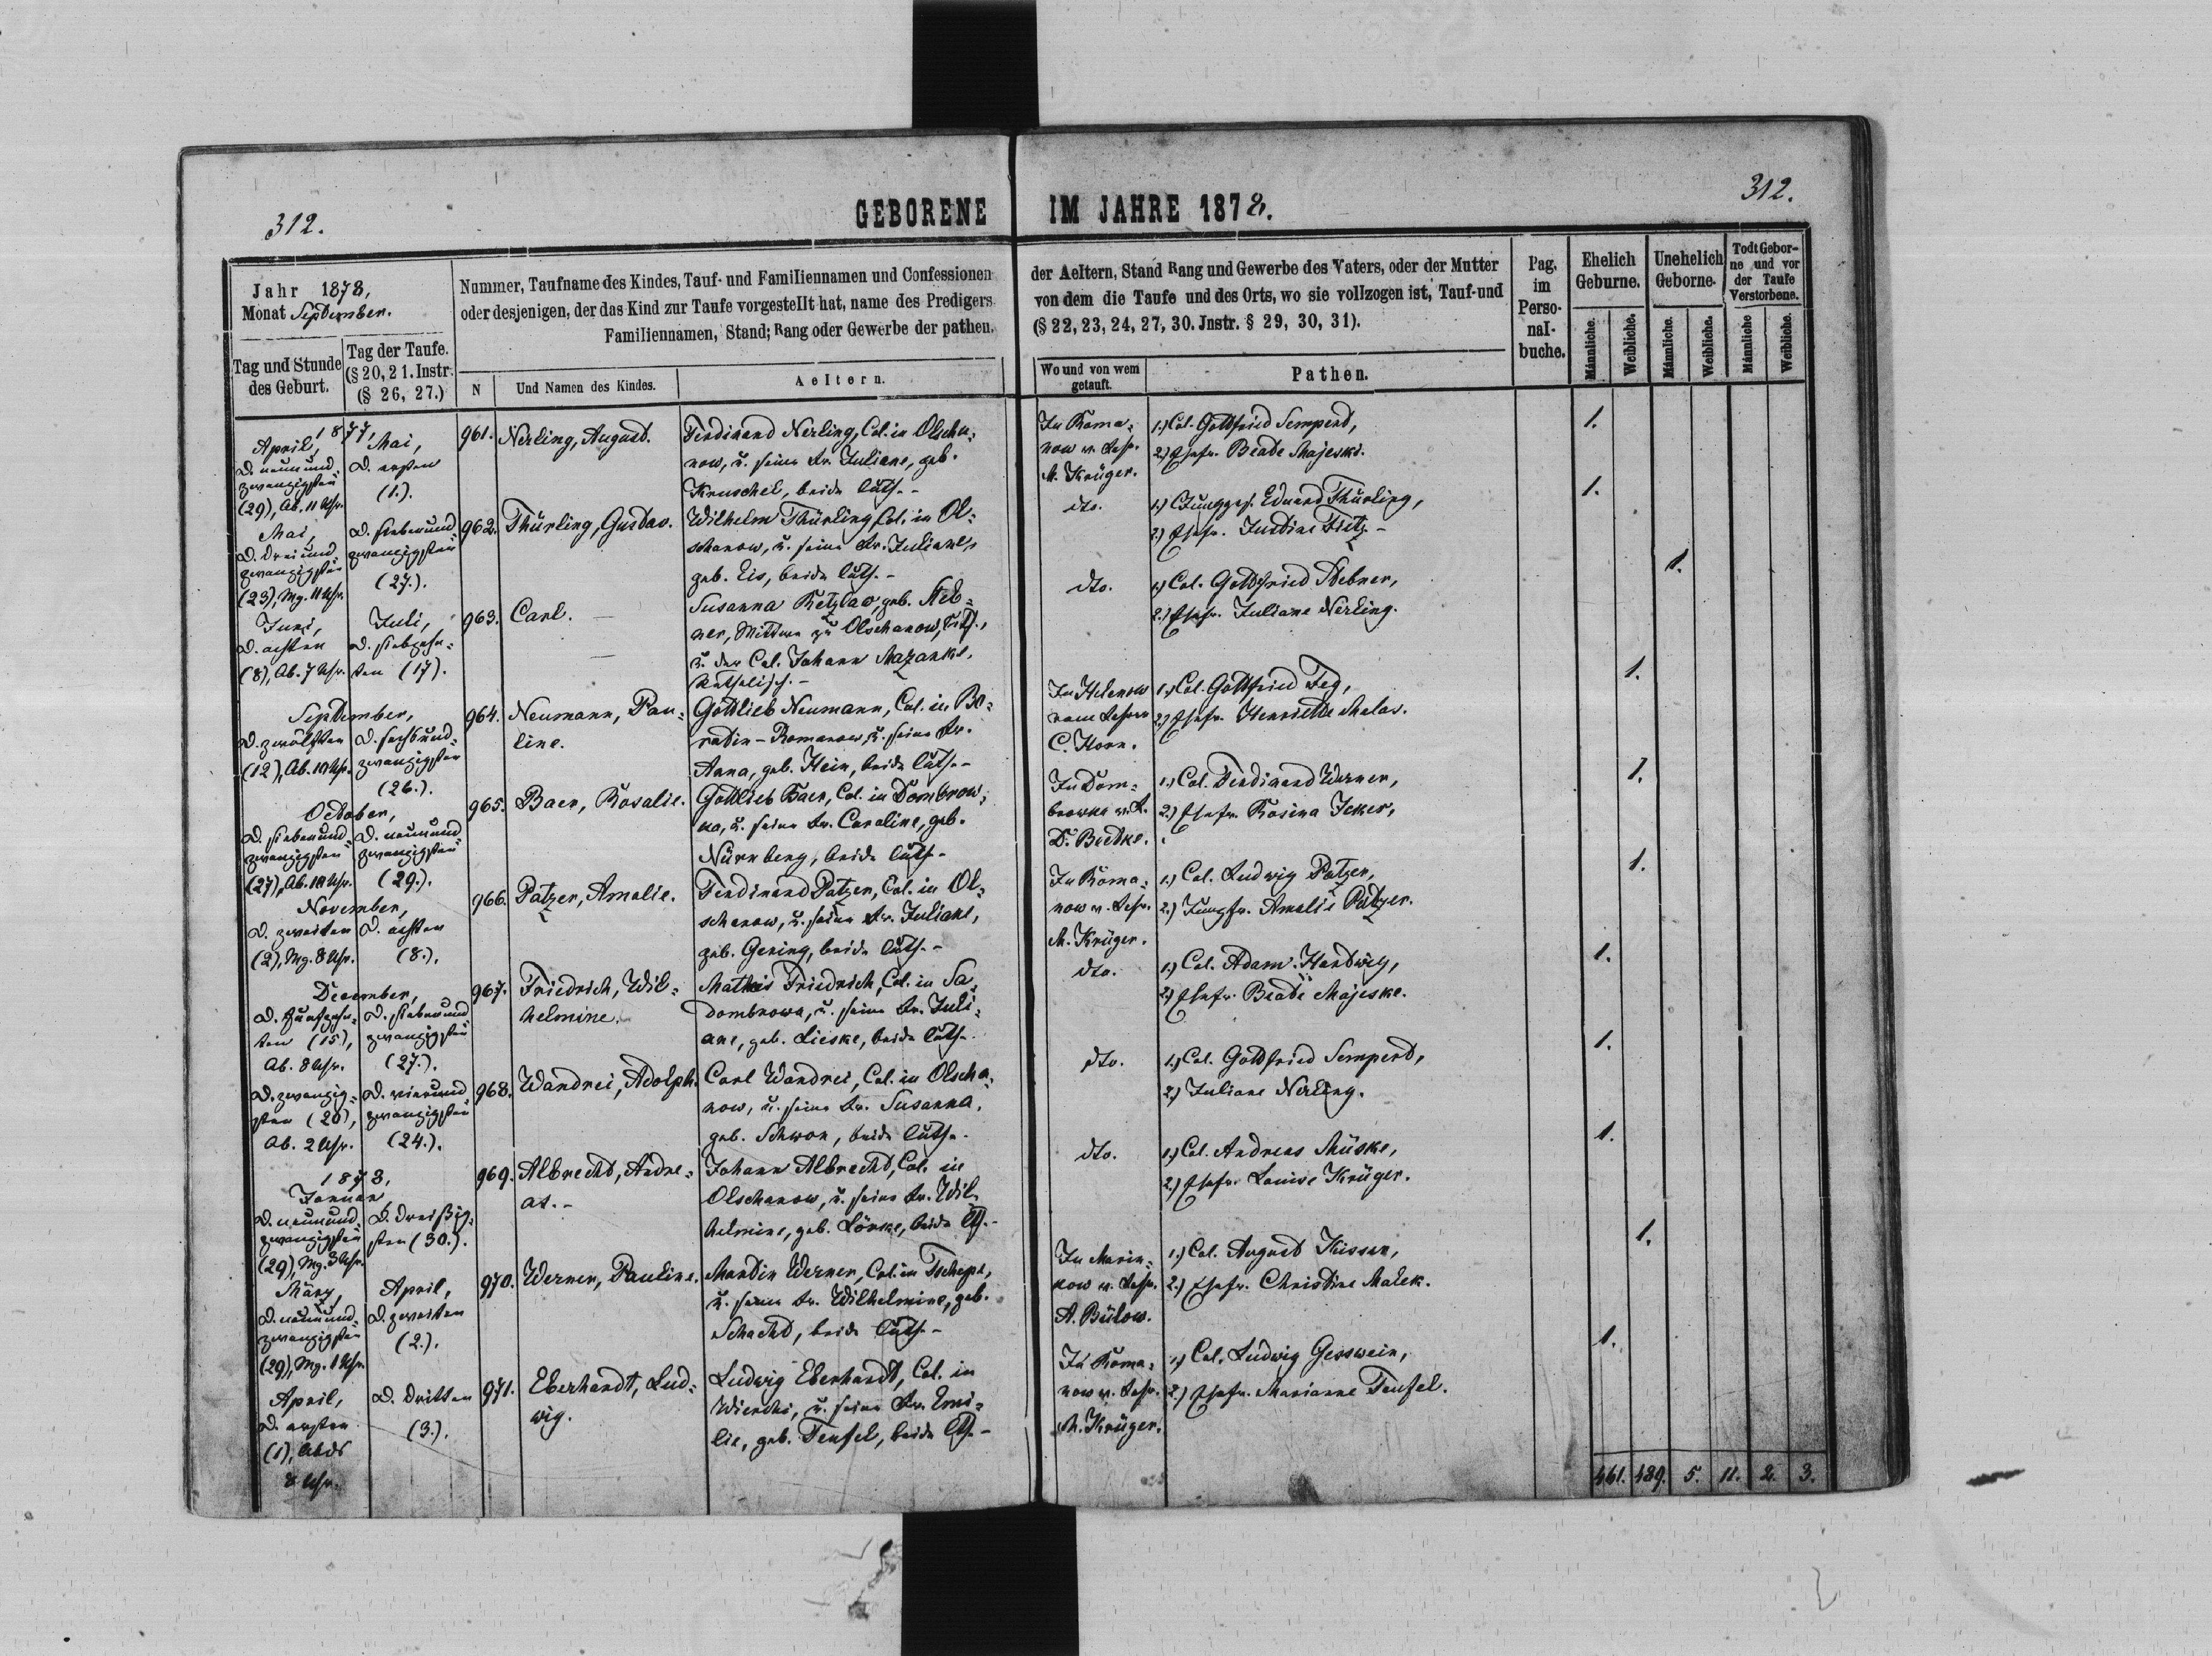 312.
GEBORENE IM JAHRE 1878.
312.
Jahr 1878,
Monat September.
Tag und Stunde
des Geburt.
Tag der Taufe.
(§ 20, 21. Instr.
(§ 26, 27.)
Nummer, Taufname des Kindes, Tauf- und Familiennamen und Confessionen
oder desjenigen, der das Kind zur Taufe vorgestellt hat, name des Predigers
Familiennamen, Stand; Rang oder Gewerbe der pathen.
N
Und Namen des Kindes.
Aeltern.
der Aeltern, Stand Rang und Gewerbe des Vaters, oder der Mutter
von dem die Taufe und des Orts, wo sie vollzogen ist, Tauf-und
(§ 22, 23, 24, 27, 30. Jnstr. § 29, 30, 31).
Wo und von wem
getauft.
Pathen.
Pag.
im
Perso-
nal-
buche.
Ehelich
Geburne.
Unehelich
Geborne.
Todt Gebor-
ne und vor
der Taufe
Verstorbene.
Männliche.
Weibliche.
Männliche.
Weibliche.
Männliche
Weibliche.
1877,
April,
D. neunund-
zwanzigsten
(29), Ab. 11 Uhr.
Mai,
D. ersten
(1.).
961.
Nerling, August.
Ferdinand Nerling, Col. in Olscha-
now, u. seine Fr. Juliane, geb.
Kruschel, beide luth. -
In Roma-
now v. Lehr.
M. Krüger.
1.) Col. Gottfried Sempert,
2.) Ehefr. Beate Majeski.
1.
Mai,
D. dreiund-
zwanzigsten
(23), Mg. 11 Uhr.
D. siebenund-
zwanzigsten
(27.).
962.
Thürling, Gustav.
Wilhelm Thürling, Col. in Ol-
schanow, u. seine Fr. Juliane,
geb. Eis, beide luth. -
dto.
1.) Junggs. Eduard Thürling,
2.) Ehefr. Justine Fitz. -
1.
Juni,
D. achten
(8), Ab. 7 Uhr.
Juli,
D. siebzehn-
ten (17).
963.
Carl. -
Susanna Retzlav, geb. Steb-
ner, Wittwe zu Olschanow, luth.,
u. der Col. Johann Mazanke,
katholisch. -
dto.
1.) Col. Gottfried Stebner,
2.) Ehefr. Juliane Nerling.
1.
September,
D. zwölften
(12), Ab. 10 Uhr.
D. sechsund-
zwanzigsten
(26.).
964.
Neumann, Pau-
line.
Gottlieb Neumann, Col. in Bo-
ratin-Romanow, u. seine Fr.
Anna, geb. Hein, beide luth. -
In Helenow
vom Lehrer
C. Horn.
1.) Col. Gottfried Feg,
2.) Ehefr. Henriette Malas.
1.
October,
D. siebenund-
zwanzigsten
(27), Ab. 10 Uhr.
D. neunund-
zwanzigsten
(29.).
965.
Baer, Rosalie.
Gottlieb Baer, Col. in Dombrow-
ka, u. seine Fr. Caroline, geb.
Nürnberg, beide luth. -
In Dom-
browka v. L.
D. Bietke.
1.) Col. Ferdinand Werner,
2.) Ehefr. Rosina Jeker,
1.
November,
D. zweiten
(2), Mg. 8 Uhr.
D. achten
(8.).
966.
Patzer, Amalie.
Ferdinand Patzer, Col. in Ol-
schanow, u. seine Fr. Juliane,
geb. Gering, beide luth. -
In Roma-
now v. Lehr.
M. Krüger.
1.) Col. Ludwig Patzer,
2.) Jungfr. Amalie Patzer.
1.
December,
D. fünfzehn-
ten (15),
Ab. 8 Uhr.
D. siebenund
zwanzigsten
(27.).
967.
Friedrich, Wil-
helmine.
Mathis Friedrich, Col. in Sa-
dombrowa, u. seine Fr. Juli-
ane, geb. Lieske, beide luth.
dto.
1.) Col. Adam Hartwig,
2.) Ehefr. Beate Majeske.
1.
D. zwanzig-
sten (20),
Ab. 2 Uhr.
D. vierund
zwanzigsten
(24.).
968.
Wandrei, Adolph.
Carl Wandrei, Col. in Olscha-
now, u. seine Fr. Susanna,
geb. Schwon, beide luth.
dto.
1.) Col. Gottfried Sempert,
2.) Juliane Nerling.
1.
1878,
Januar,
D. neunund-
zwanzigsten
(29), Mg. 3 Uhr.
D. dreißig-
sten (30.).
969.
Albrecht, Andre-
as. -
Johann Albrecht, Col. in
Olschanow, u. seine Fr. Wil-
helmine, geb. Lönke, beide lth. -
dto.
1.) Col. Andreas Müske,
2.) Ehefr. Louise Krüger.
1.
März,
D. neunund-
zwanzigsten
(29), Mg. 1 Uhr.
April,
D. zweiten
(2.).
970.
Werner, Pauline.
Martin Werner, Col. in Tschepe,
u. seine Fr. Wilhelmine, geb.
Schacht, beide luth. -
In Marin-
kow v. Lehr.
A. Bülow.
1.) Col. August Kissen,
2.) Ehefr. Christine Malek.
1.
April,
D. ersten
(1), Abds
8 Uhr.
D. dritten
(3.).
971.
Eberhardt, Lud-
wig.
Ludwig Eberhardt, Col. in
Wierchi, u. seine Fr. Emi-
lie, geb. Teufel, beide lth. -
In Roma-
now v. Lehr.
M. Krüger.
1.) Col. Ludwig Gesswein,
2.) Ehefr. Marianne Teufel.
1.
461. 489. 5. 11. 2. 3.